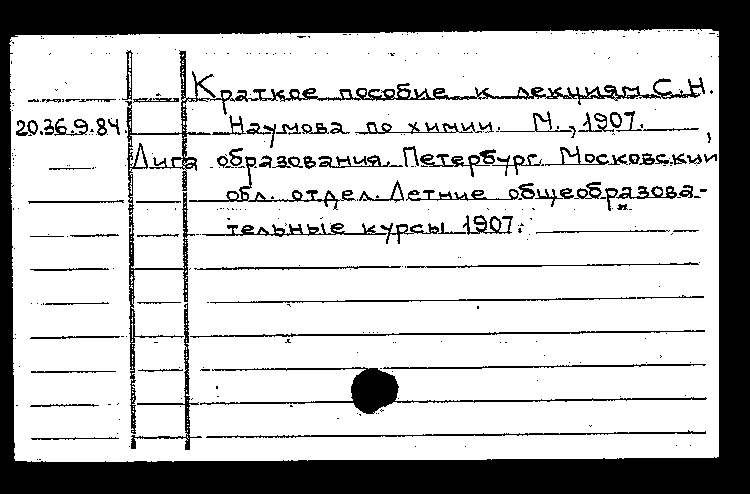 Краткое пособие к лекциям С.Н.
20.36.9.84. Наумова по химии. М., 1907.
Лига образования. Петербург. Московский
обл. отдел. Летние общеобразова-
тельные курсы 1907.